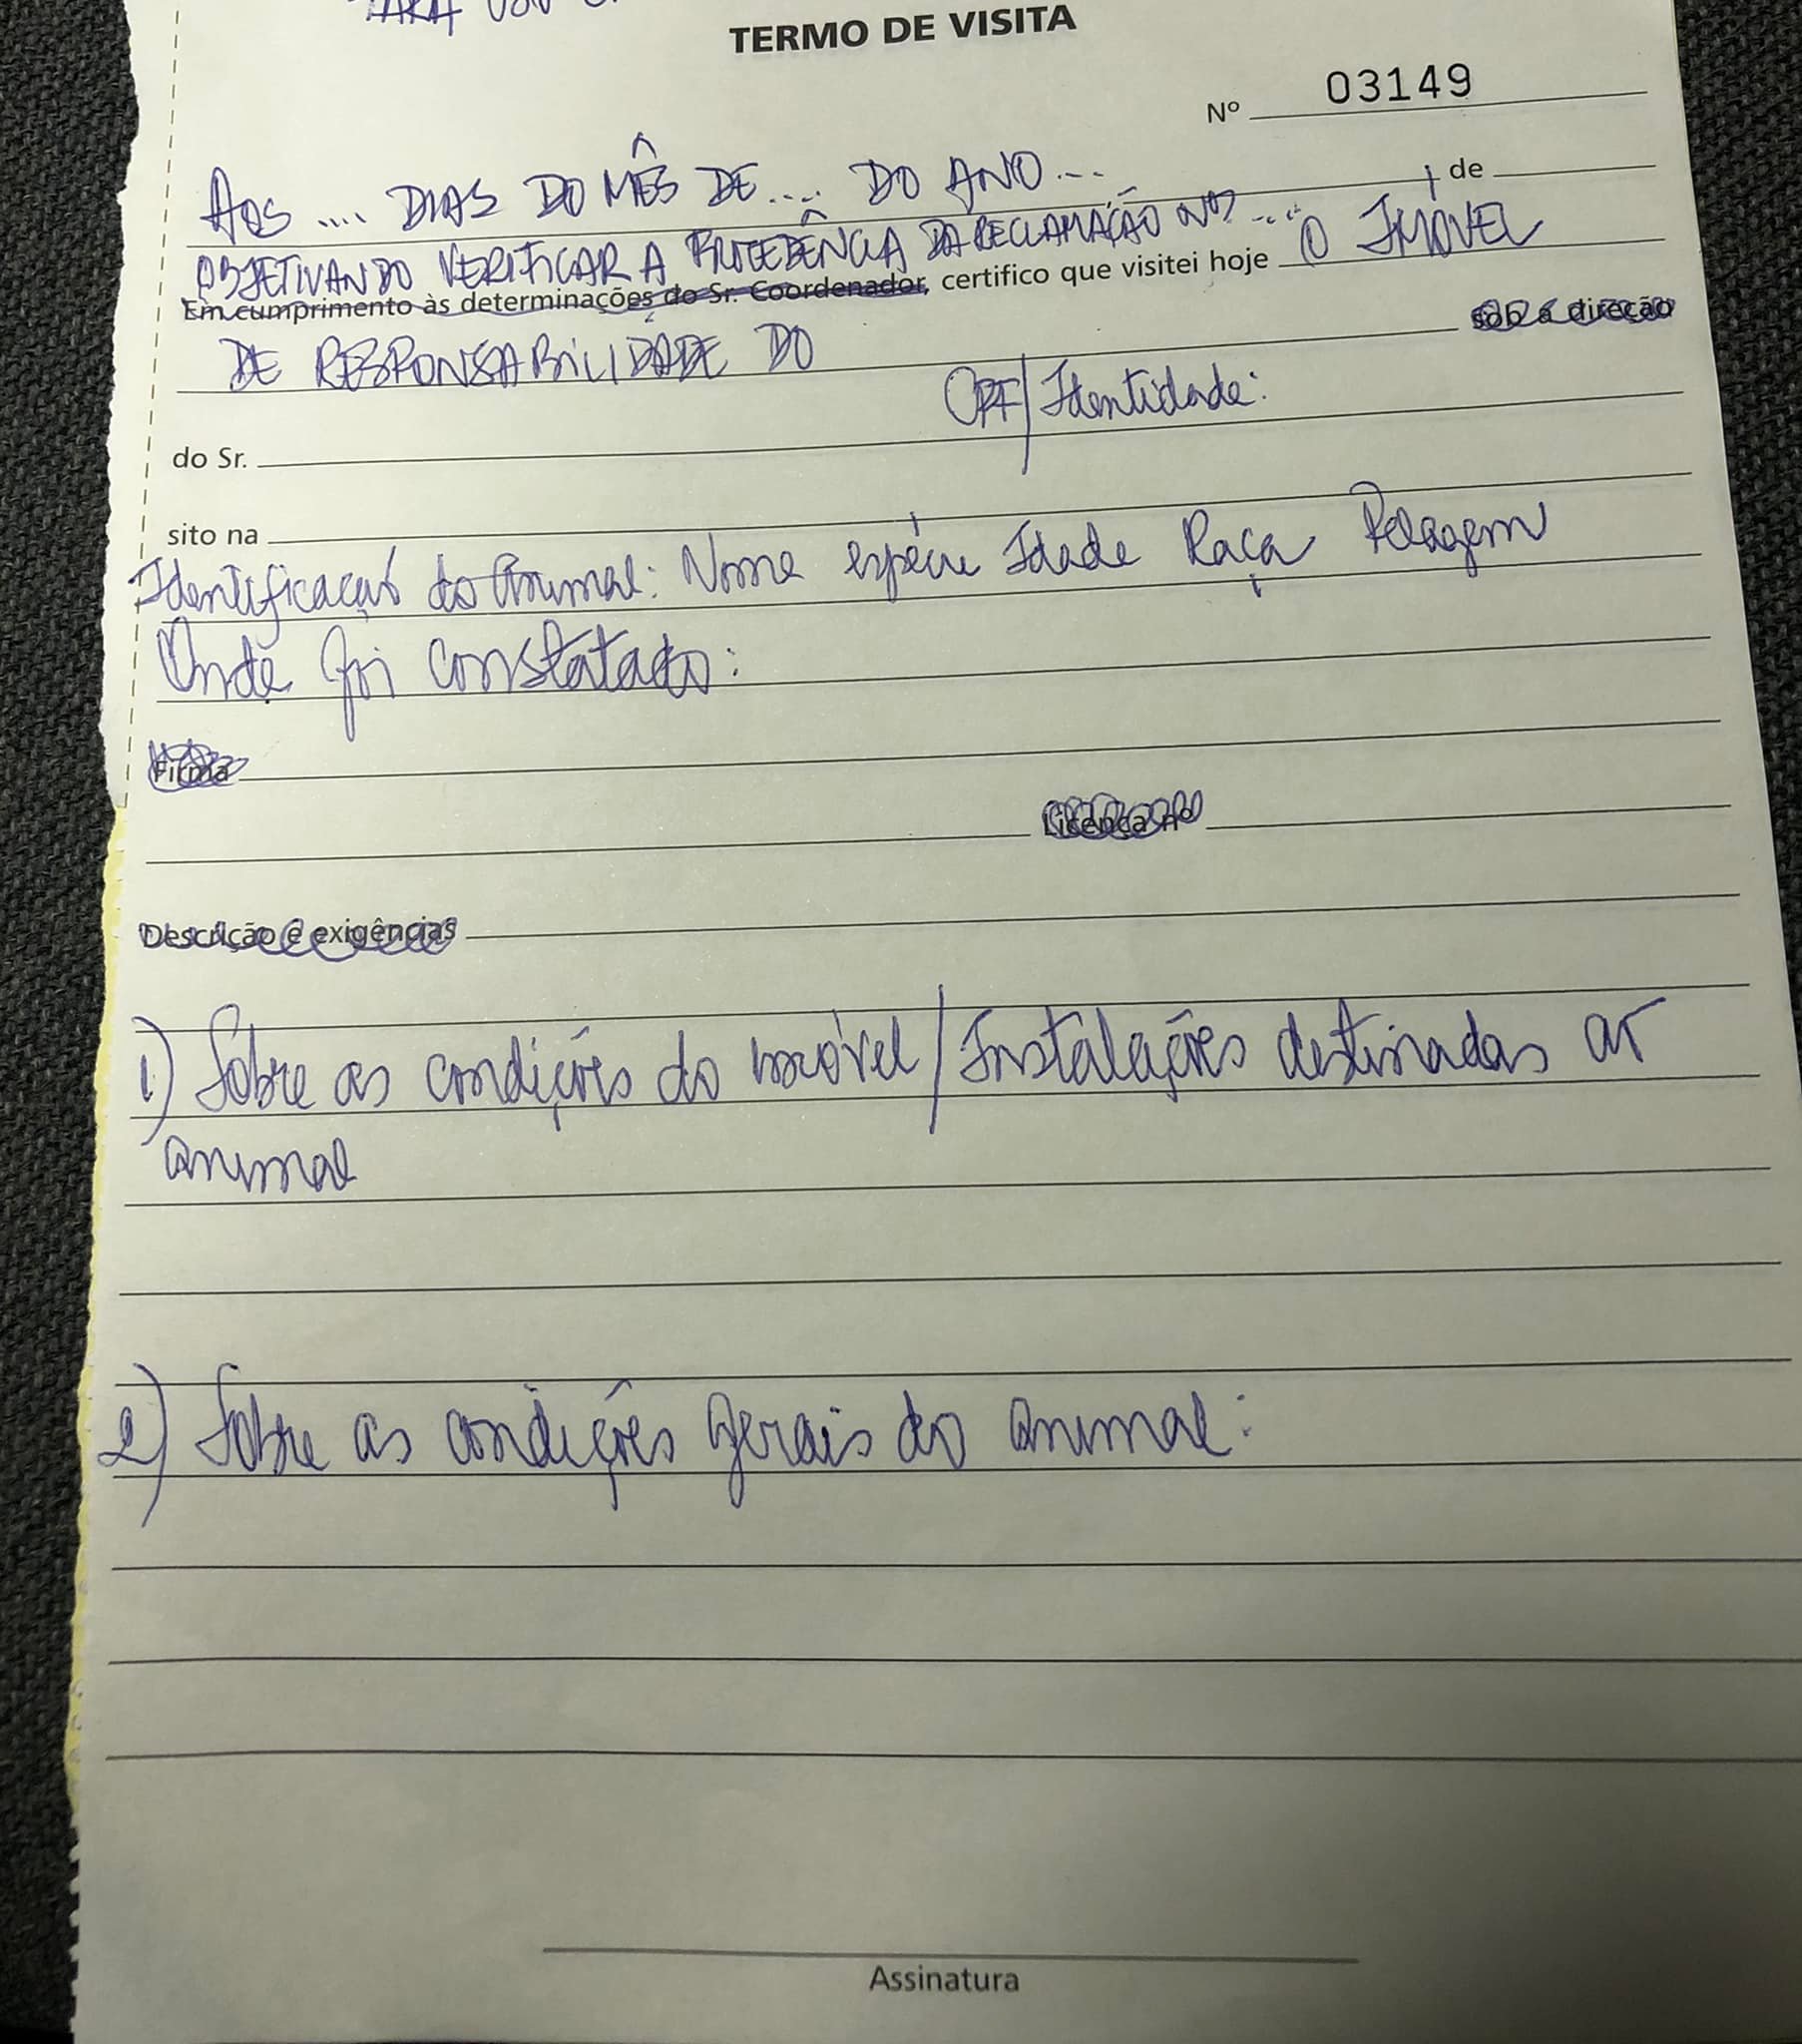 PARA USO
TERMO DE VISITA
Nº 03149
AOS .... DIAS DO MÊS DE .... DO ANO ... , de
OBJETIVANDO VERIFICAR A PROCEDÊNCIA DA RECLAMAÇÃO Nº ....
Em cumprimento às determinações do Sr. Coordenador, certifico que visitei hoje O IMÓVEL
sob a direção
DE RESPONSABILIDADE DO
CPF/Identidade:
do Sr.
sito na
Identificação do Animal: Nome espécie Idade Raça Pelagem
Onde foi constatado:
Firma
Licença nº
Descrição e exigências
1) Sobre as condições do imóvel/Instalações destinadas ao
animal
2) Sobre as condições gerais do animal:
Assinatura